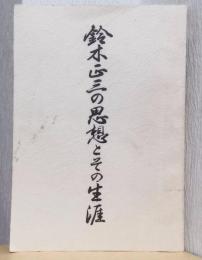 鈴木正三の思想とその生涯